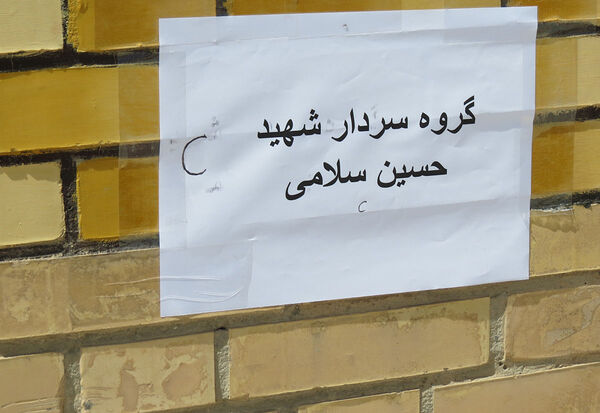 گروه سردار شهید
حسین سلامی